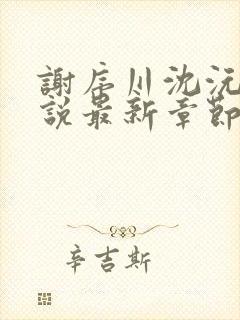 謝辰川沈沅
說最新章節
辛吉斯